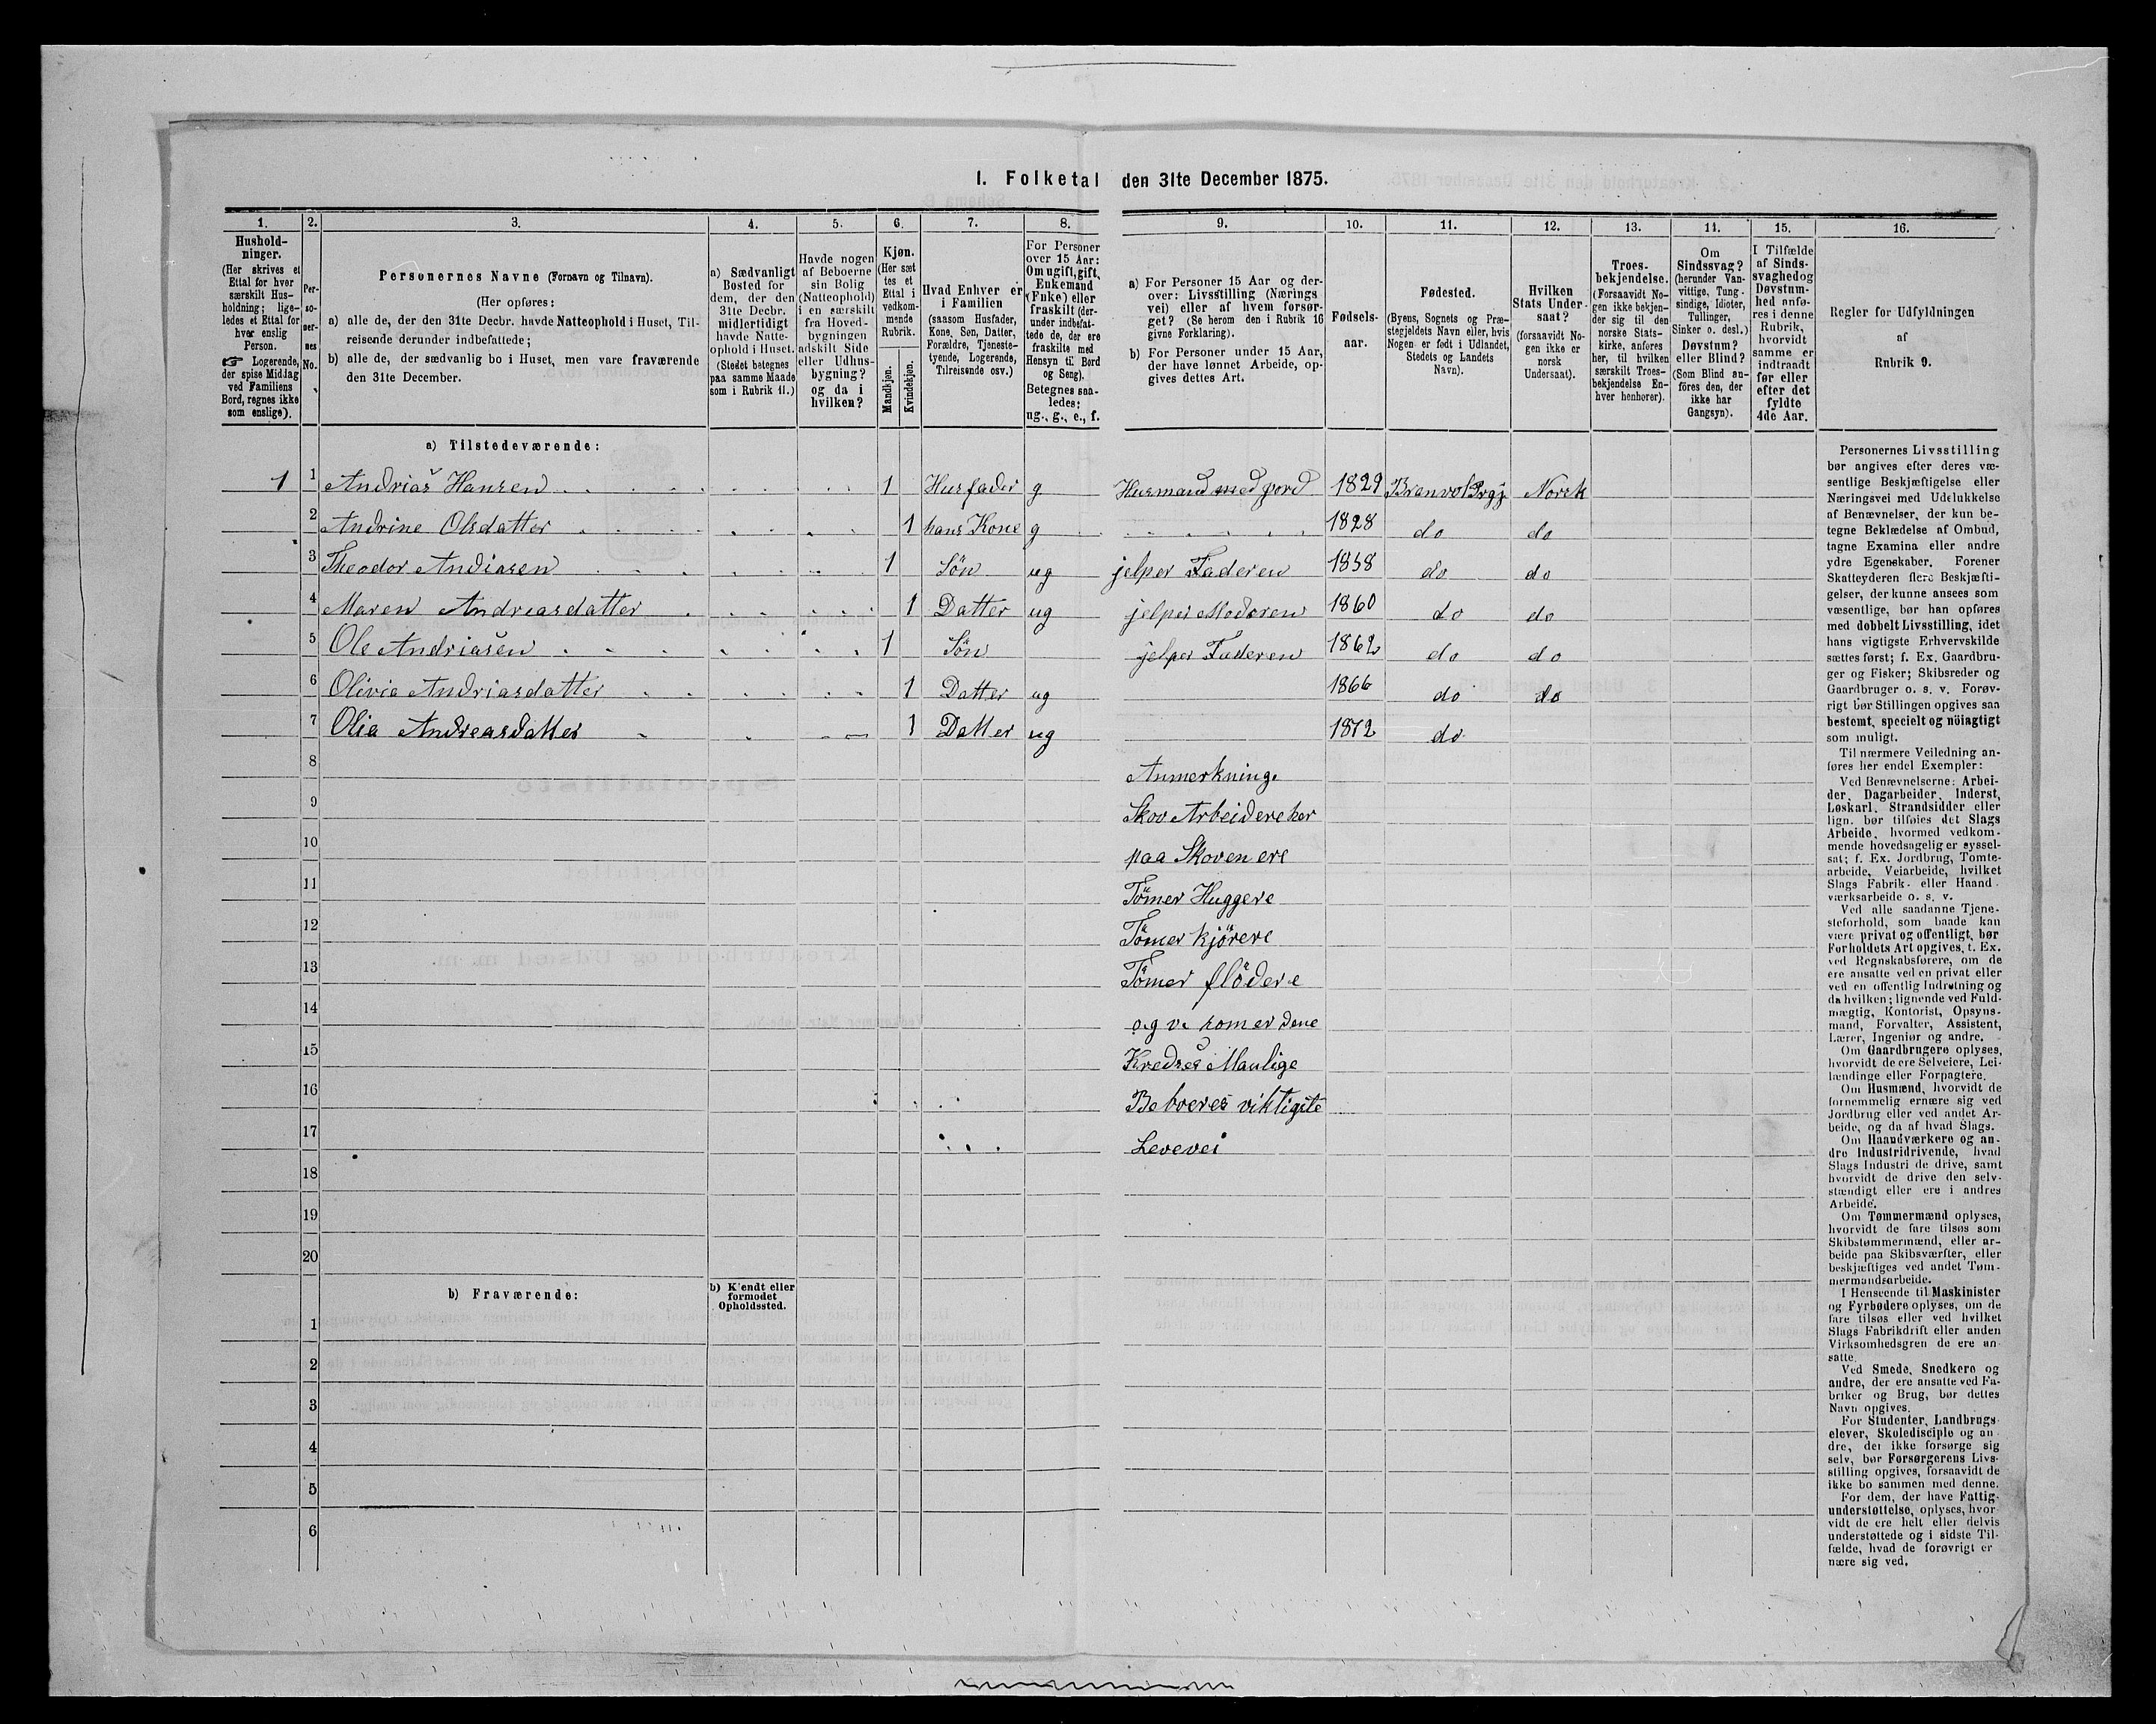 I. Folketal den 31te December 1875.
1. 2. 3. 4. 5. 6. 7. 8. 9. 10. 11. 12. 13. 14. 15. 16.
Hushold-
ninger.
(Her skrives et
Ettal for hver
særskilt Hus-
holdning; lige-
ledes et Ettal for
hver enslig
Person.
☞ Logerende,
der spise Middag
ved Familiens
Bord, regnes ikke
som enslige).
Per-
so-
ner-
nes
No.
Personernes Navne (Fornavn og Tilnavn).
(Her opføres:
a) alle de, der den 31te Decbr. havde Natteophold i Huset, Til-
reisende derunder indbefattede;
b) alle de, der sædvanlig bo i Huset, men vare fraværende
den 31te December.
a) Sædvanligt
Bosted for
dem, der den
31te Decbr.
midlertidigt
havde Natte-
ophold i Huset.
(Stedet betegnes
paa samme Maade
som i Rubrik 11.)
Havde nogen
af Beboerne
sin Bolig
(Natteophold)
i en særskilt
fra Hoved-
bygningen
adskilt Side
eller Udhus-
bygning?
og da i
hvilken?
Kjøn.
(Her sæt
tes et
Ettal i
vedkom-
mende
Rubrik.
Mandkjøn.
Kvindekjøn.
Hvad Enhver er
i Familien
(saasom Husfader,
Kone, Søn, Datter,
Forældre, Tjeneste-
tyende, Logerende,
Tilreisende osv.)
For Personer
over 15 Aar:
Om ugift, gift,
Enkemand
(Enke) eller
fraskilt (der-
under indbefat-
tede de, der ere
fraskilte med
Hensyn til Bord
og Seng).
Betegnes saa-
ledes:
ug., g., e., f.
a) For Personer 15 Aar og der-
over: Livsstilling (Nærings
vei) eller af hvem forsør-
get? (Se herom den i Rubrik 16
givne Forklaring).
b) For Personer under 15 Aar,
der have lønnet Arbeide, op-
gives dettes Art.
Fødsels-
aar.
Fødested.
(Byens, Sognets og Præ-
stegjeldets Navn eller, hvis
Nogen er født i Udlandet,
Stedets og Landets
Navn).
Hvilken
Stats Under-
saat?
(forsaavidt No-
gen ikke er
norsk
Undersaat).
Troes-
bekjendelse.
(Forsaavidt No-
gen ikke bekjen-
der sig til den
norske Stats-
kirke, anføres
her, til hvilken
særskilt Troes-
bekjendelse En-
hver henhører).
Om
Sindssvag?
(herunder Van-
vittige, Tung-
sindige, Idioter,
Tullinger,
Sinker o. desl.)
Døvstum?
eller Blind?
(Som Blind an-
føres den, der
ikke har
Gangsyn).
I Tilfælde
af Sinds-
svaghedog
Døvstum-
hed anfø-
res i denne
Rubrik,
hvorvidt
samme er
indtraadt
før eller
efter det
fyldte
4de Aar.
Regler for Udfyldningen
af
Rubrik 9.
a) Tilstedeværende:
1 1 Andrias Hansen 1 Husfader g Husmand med jord 1829 Branvol Prgj Norsk
2 Andrine Olsdatter 1 hans Kone g 1828 do do
3 Theodor Andiasen 1 Sön ug jelper Faderen 1858 do do
4 Maren Andreasdatter 1 Datter ug jelper Moderen 1860 do do
5 Ole Andriasen 1 Sön jelper Faderen 1862 do do
6 Olivia Andriasdatter 1 Datter ug 1866 do do
7 Olia Andreasdatter 1 Datter ug 1872 do
8 Anmerkning.
9 Skov Arbeidere her
10 paa Skoven ere
11 Tömer Huggere
12 Tömer kjörere
13 Tömer flödere
14 og ve kom er dene
15 Kredses Manlige
16 Beboeres viktigste
17 Levevei
18
19
20
b) Fraværende:
b) Kjendt eller
formodet
Opholdssted.
1
2
3
4
5
6
Personernes Livsstilling
bør angives efter deres væ-
sentlige Beskjæftigelse eller
Næringsvei med Udelukkelse
af Benævnelser, der kun be-
tegne Beklædelse af Ombud,
tagne Examina eller andre
ydre Egenskaber. Forener
Skatteyderen flere Beskjæfti-
gelser, der kunne ansees som
væsentlige, bør han opføres
med dobbelt Livsstilling, idet
hans vigtigste Erhvervskilde
sættes først; f. Ex. Gaardbru-
ger og Fisker; Skibsreder og
Gaardbruger o. s. v. Forøv-
rigt bør Stillingen opgives saa
bestemt, specielt og nöiagtigt
som muligt.
Til nærmere Veiledning an-
føres her endel Exempler:
Ved Benævnelserne: Arbei-
der, Dagarbeider, Inderst,
Løskarl, Strandsidder eller
lign. bør tilføies det Slags
Arbeide, hvormed vedkom-
mende hovedsagelig er syssel-
sat; f. Ex. Jordbrug, Tomte-
arbeide, Veiarbeide, hvilket
Slags Fabrik- eller Haand-
værksarbeide o. s. v.
Ved alle saadanne Tjene-
steforhold, som baade kan
være privat og offentligt, bør
Forholdets Art opgives, t. Ex.
ved Regnskabsførere, om de
ere ansatte ved en privat eller
ved en offentlig Indretning og
da hvilken; lignende ved Fuld-
mægtig, Kontorist, Opsyns-
mand, Forvalter, Assistent,
Lærer, Ingeniør og andre.
Om Gaardbrugere oplyses,
hvorvidt de ere Selveiere, Lei-
lændinge eller Forpagtere.
Om Husmænd, hvorvidt de
fornemmelig ernære sig ved
Jordbrug eller ved andet Ar-
beide, og da af hvad Slags.
Om Haandværkere og an-
dre Industridrivende, hvad
Slags Industri de drive, samt
hvorvidt de drive den selv-
stændigt eller ere i andres
Arbeide.
Om Tømmermænd oplyses,
hvorvidt de fare tilsøs som
Skibstømmermænd, eller ar-
beide paa Skibsværfter, eller
beskjæftiges ved andet Tøm-
mermandsarbeide.
I Henseende til Maskinister
og Fyrbødere oplyses, om de
fare tilsøs eller ved hvilket
Slags Fabrikdrift eller anden
Virksomhedsgren de ere an-
satte.
Ved Smede, Snedkere og
andre, der ere ansatte ved Fa-
briker og Brug, bør dettes
Navn opgives.
For Studenter, Landbrugs-
elever, Skoledisciple og an
dre, der ikke forsørge sig
selv, bør Forsørgerens Livs-
stilling opgives, forsaavidt de
ikke bo sammen med denne.
For dem, der have Fattig-
understøttelse, oplyses, hvor
vidt de ere helt eller delvis
understøttede og i sidste Til-
fælde, hvad de forøvrigt er
nære sig ved.